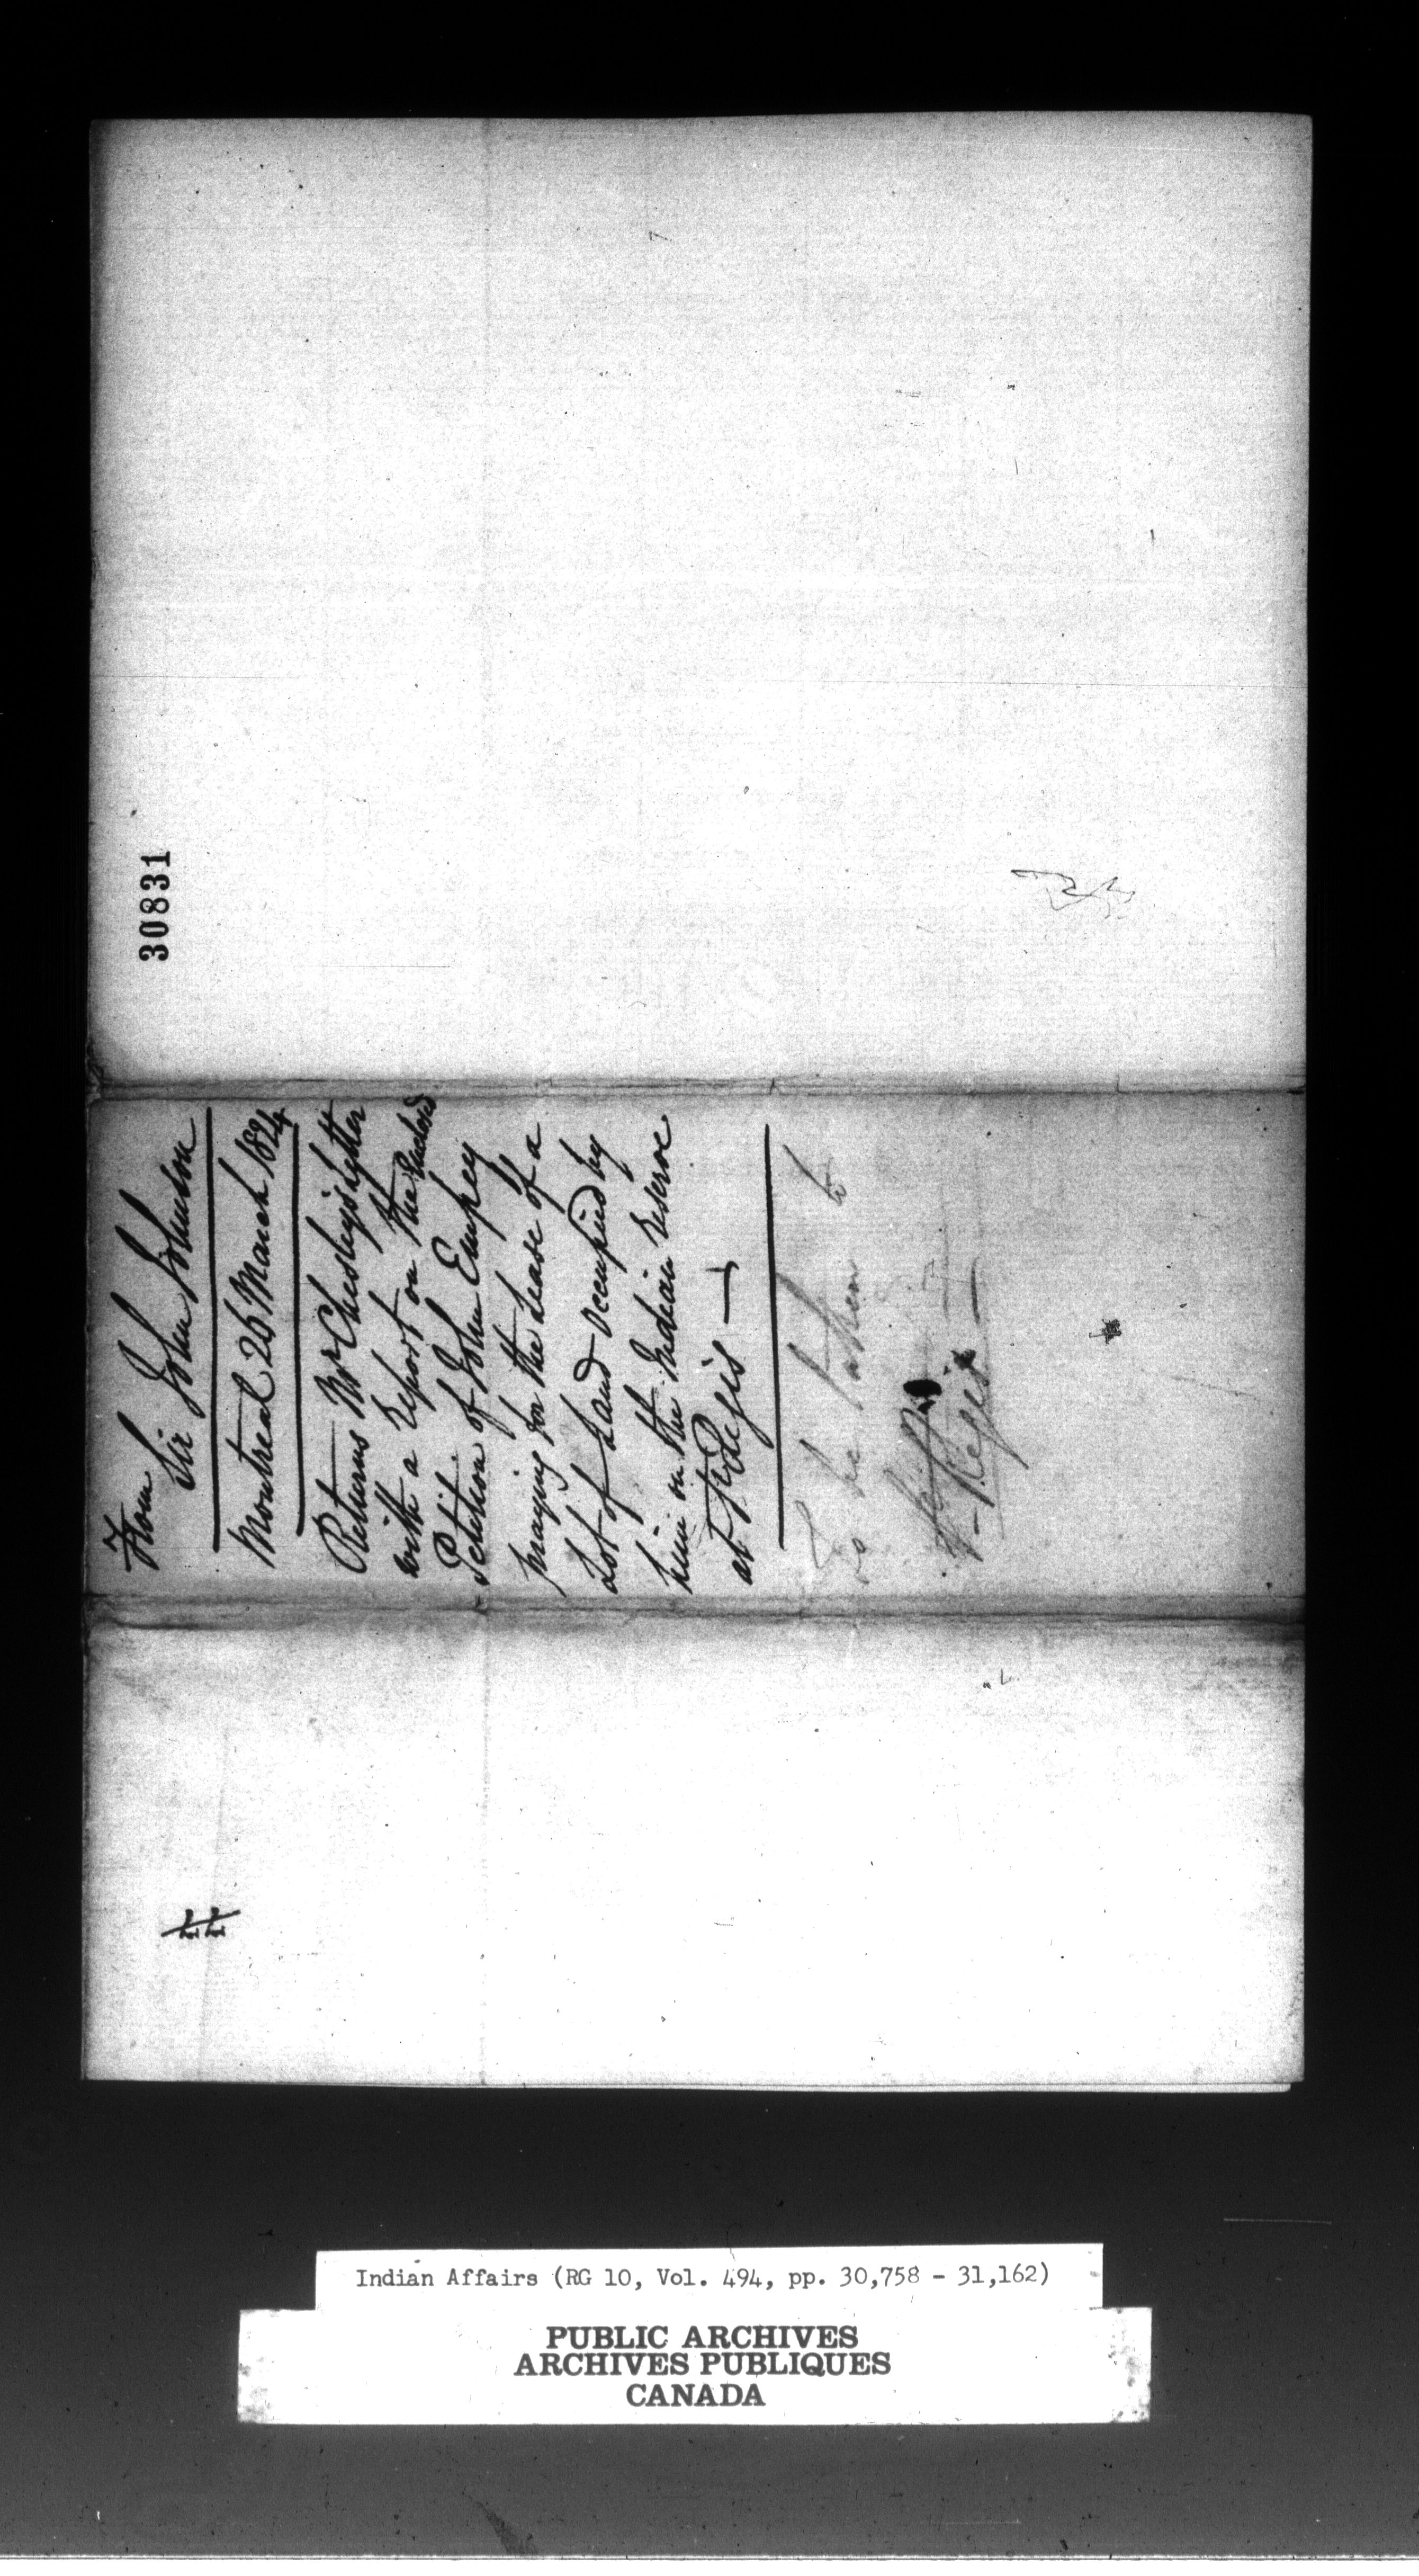 30831
From
Sir John Johnson
Montreal 26 March 1824
Returns Mr Chesley's letter
with a Report on the Enclosed
Petition of John Empey
praying for the Lease of a
Lot of Land occupied by
him on the Indian Reserve
at St Regis —
To be taken to
St Regis —
Indian Affairs (RG 10, Vol. 494, pp. 30,758 - 31,162)
PUBLIC ARCHIVES
ARCHIVES PUBLIQUES
CANADA